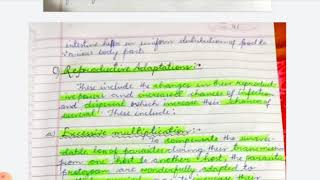 intestine helps in uniform distribution of food to
various body parts.
Reproductive Adaptations:-
These include the changes in their reproduct
-ive power and increased chances of infection
and dispersal which increase their chances of
survival. These include:-
Excessive multiplication:-
To compensate the
loss of parasite during their transmission
from one host to another host, the parasitic
are wonderfully adapted to
increase their